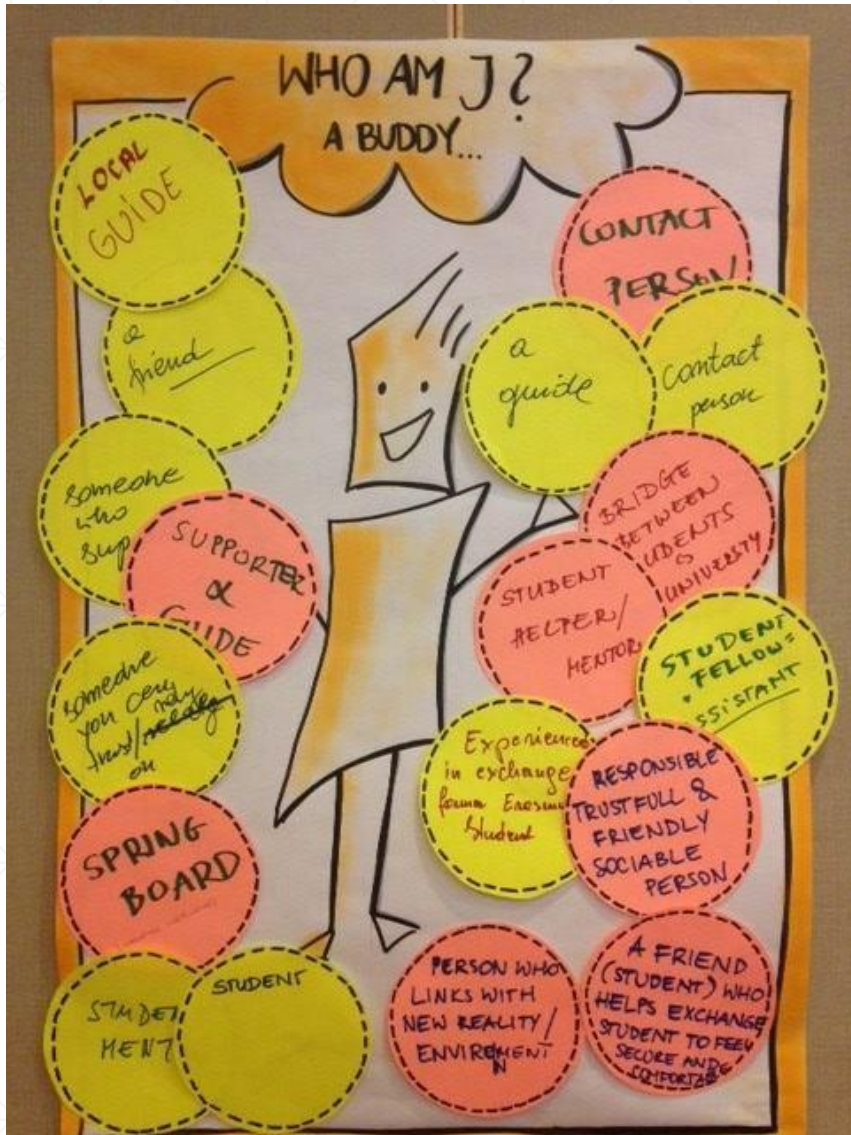 WHO AM I?
A BUDDY...
LOCAL
GUIDE
a
friend
someone
who
sup
SUPPORTER
&
GUIDE
someone
you can
trust/rely
on
SPRING
BOARD
STUDENT
MENT
STUDENT
CONTACT
PERSON
a
guide
contact
person
BRIDGE
BETWEEN
UDENTS
&
UNIVERSITY
STUDENT
HELPER/
MENTOR
STUDENT
"FELLOW"
SSISTANT
Experience
in exchange
former Erasmu
Student
RESPONSIBLE
TRUSTFULL &
FRIENDLY
SOCIABLE
PERSON
PERSON WHO
LINKS WITH
NEW REALITY/
ENVIRONMENT
A FRIEND
(STUDENT) WHO
HELPS EXCHANGE
STUDENT TO FEEL
SECURE AND
COMFORTABLE